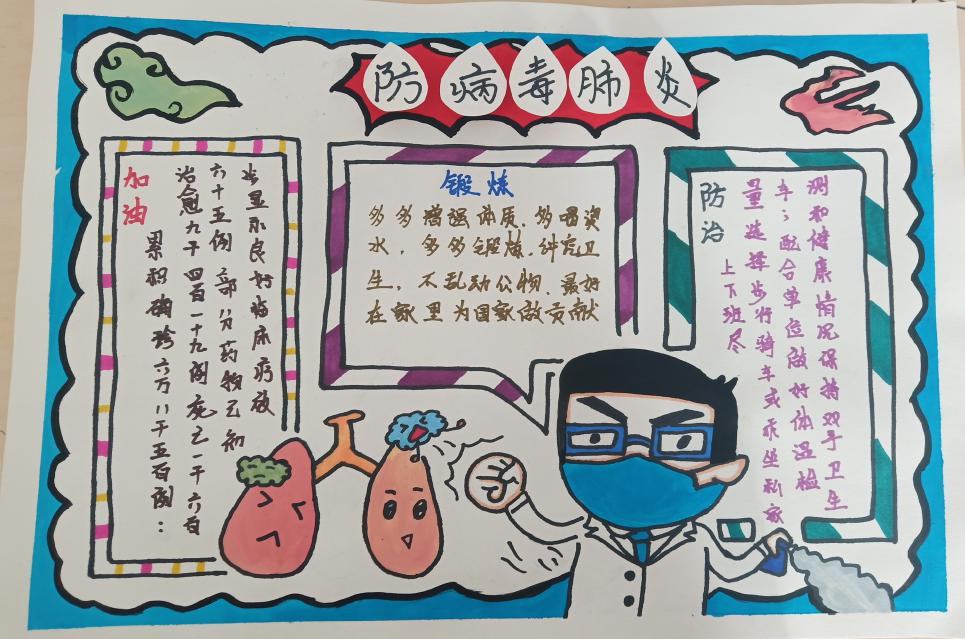 防病毒肺炎
加油
累积确诊六万八千五百例：
治愈九千四百一十九例死亡一千六百
六十五例 部分药物已初
步显示良好临床疗效
锻炼
多多增强体质、多喝
水，多多锻炼，讲究卫
生，不乱动公物、最好
在家里为国家做贡献
防治
上下班尽
量选择步行骑车或乘坐私家
车；配合单位做好体温检
测和健康情况保持双手卫生